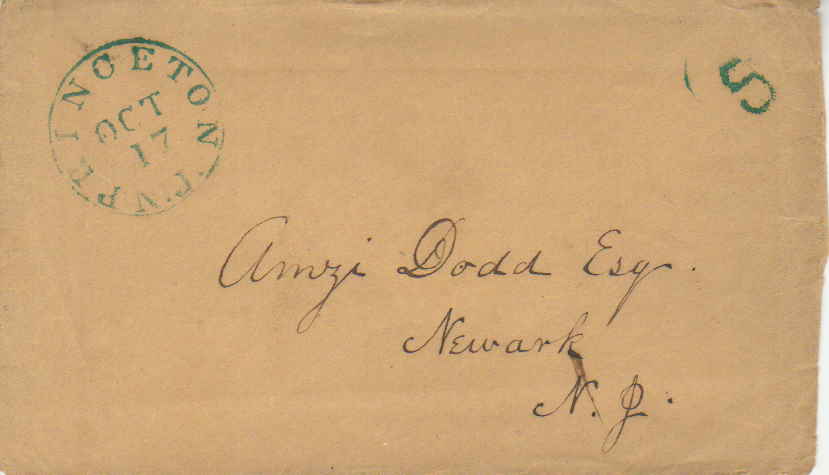 PRINCETON N.J.
OCT
17
5
Amzi Dodd Esq.
Newark
N. J.